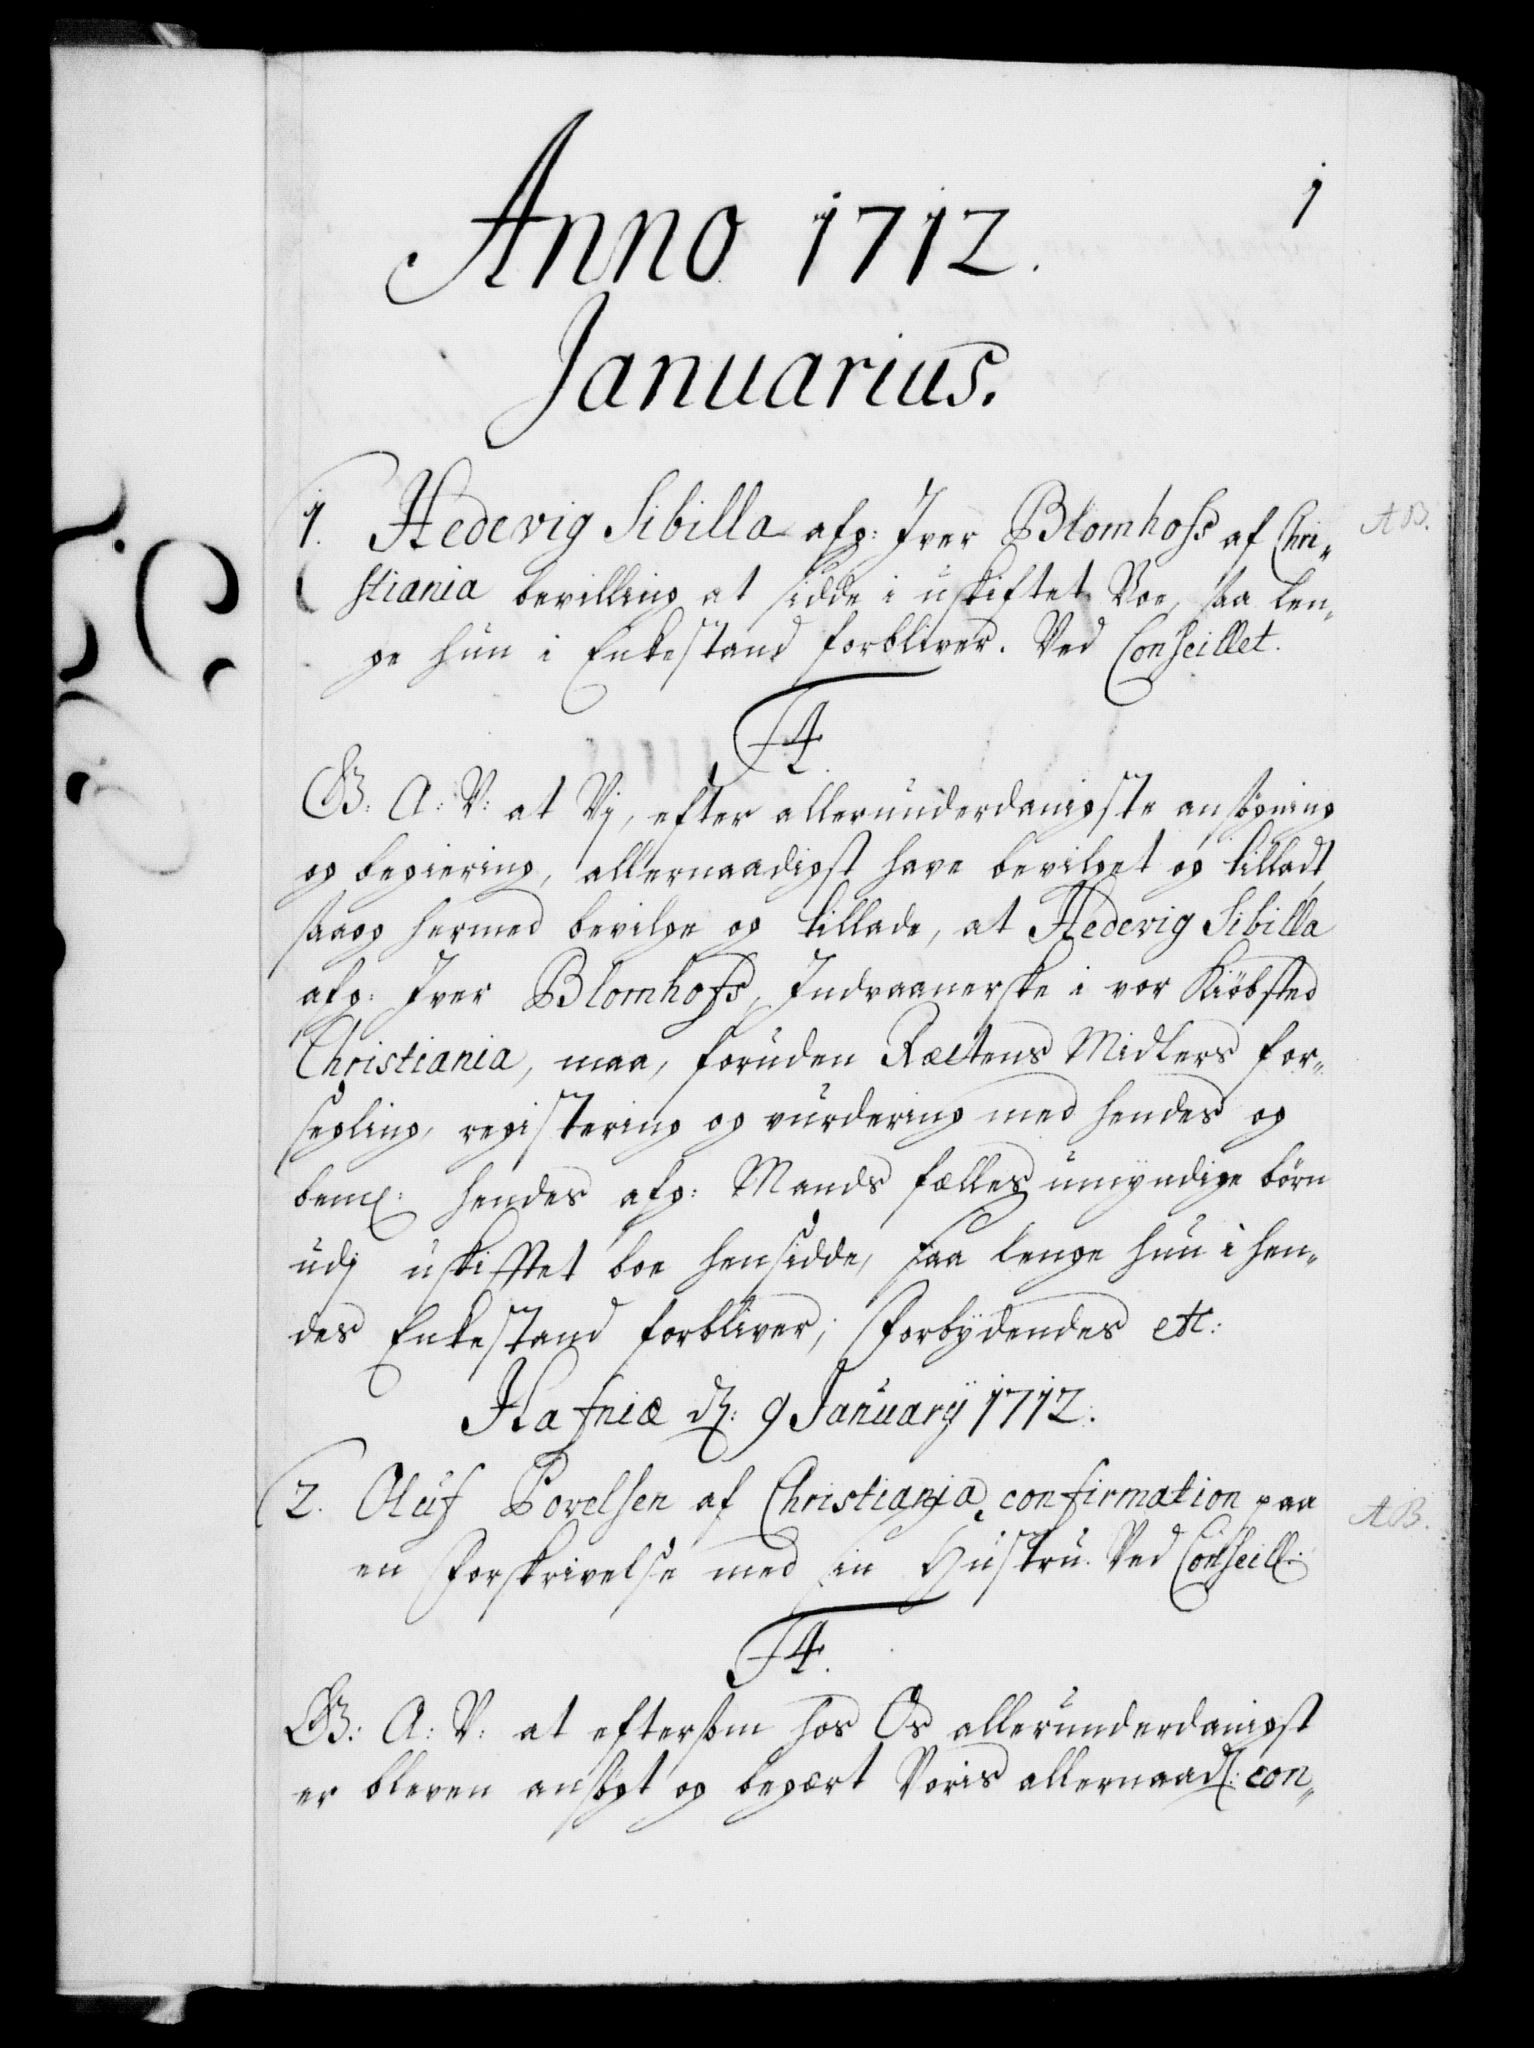 1
Anno 1712.
Januarius.
1. Hedevig Sibilla afg: Iver Blomhofs af Chri„
stiania bevilling at sidde i uskiftet Boe, saa len„
ge hun i Enkestand forbliver. Ved Conseillet.
F4.
G: A: V: at Vj, efter allerunderdanigste ansøgning
og begiering, allernaadigst have bevilget og tilladt,
saaog hermed bevilge og tillade, at Hedevig Sibilla
afg: Iver Blomhofs, Indvaanerske i vor Kiøbsted
Christiania, maa, foruden Rættens Midlers for„
segling, registering og vurdering med hendes og
bem: hendes afg: Mands fælles umyndige børn
udj uskifftet boe hensidde, saa lenge hun i hen„
des Enkestand forbliver; Forbydendes etc:
Hafniæ d: 9 Januarij 1712.
2. Oluf Povelsen af Christiania, confirmation paa
en Forskrivelse med sin Hustru. Ved Conseill:
F4.
G: A: V: at eftersom hos Os allerunderdanigst
er bleven ansøgt og begært Voris allernaad: con„
AB.
AB.